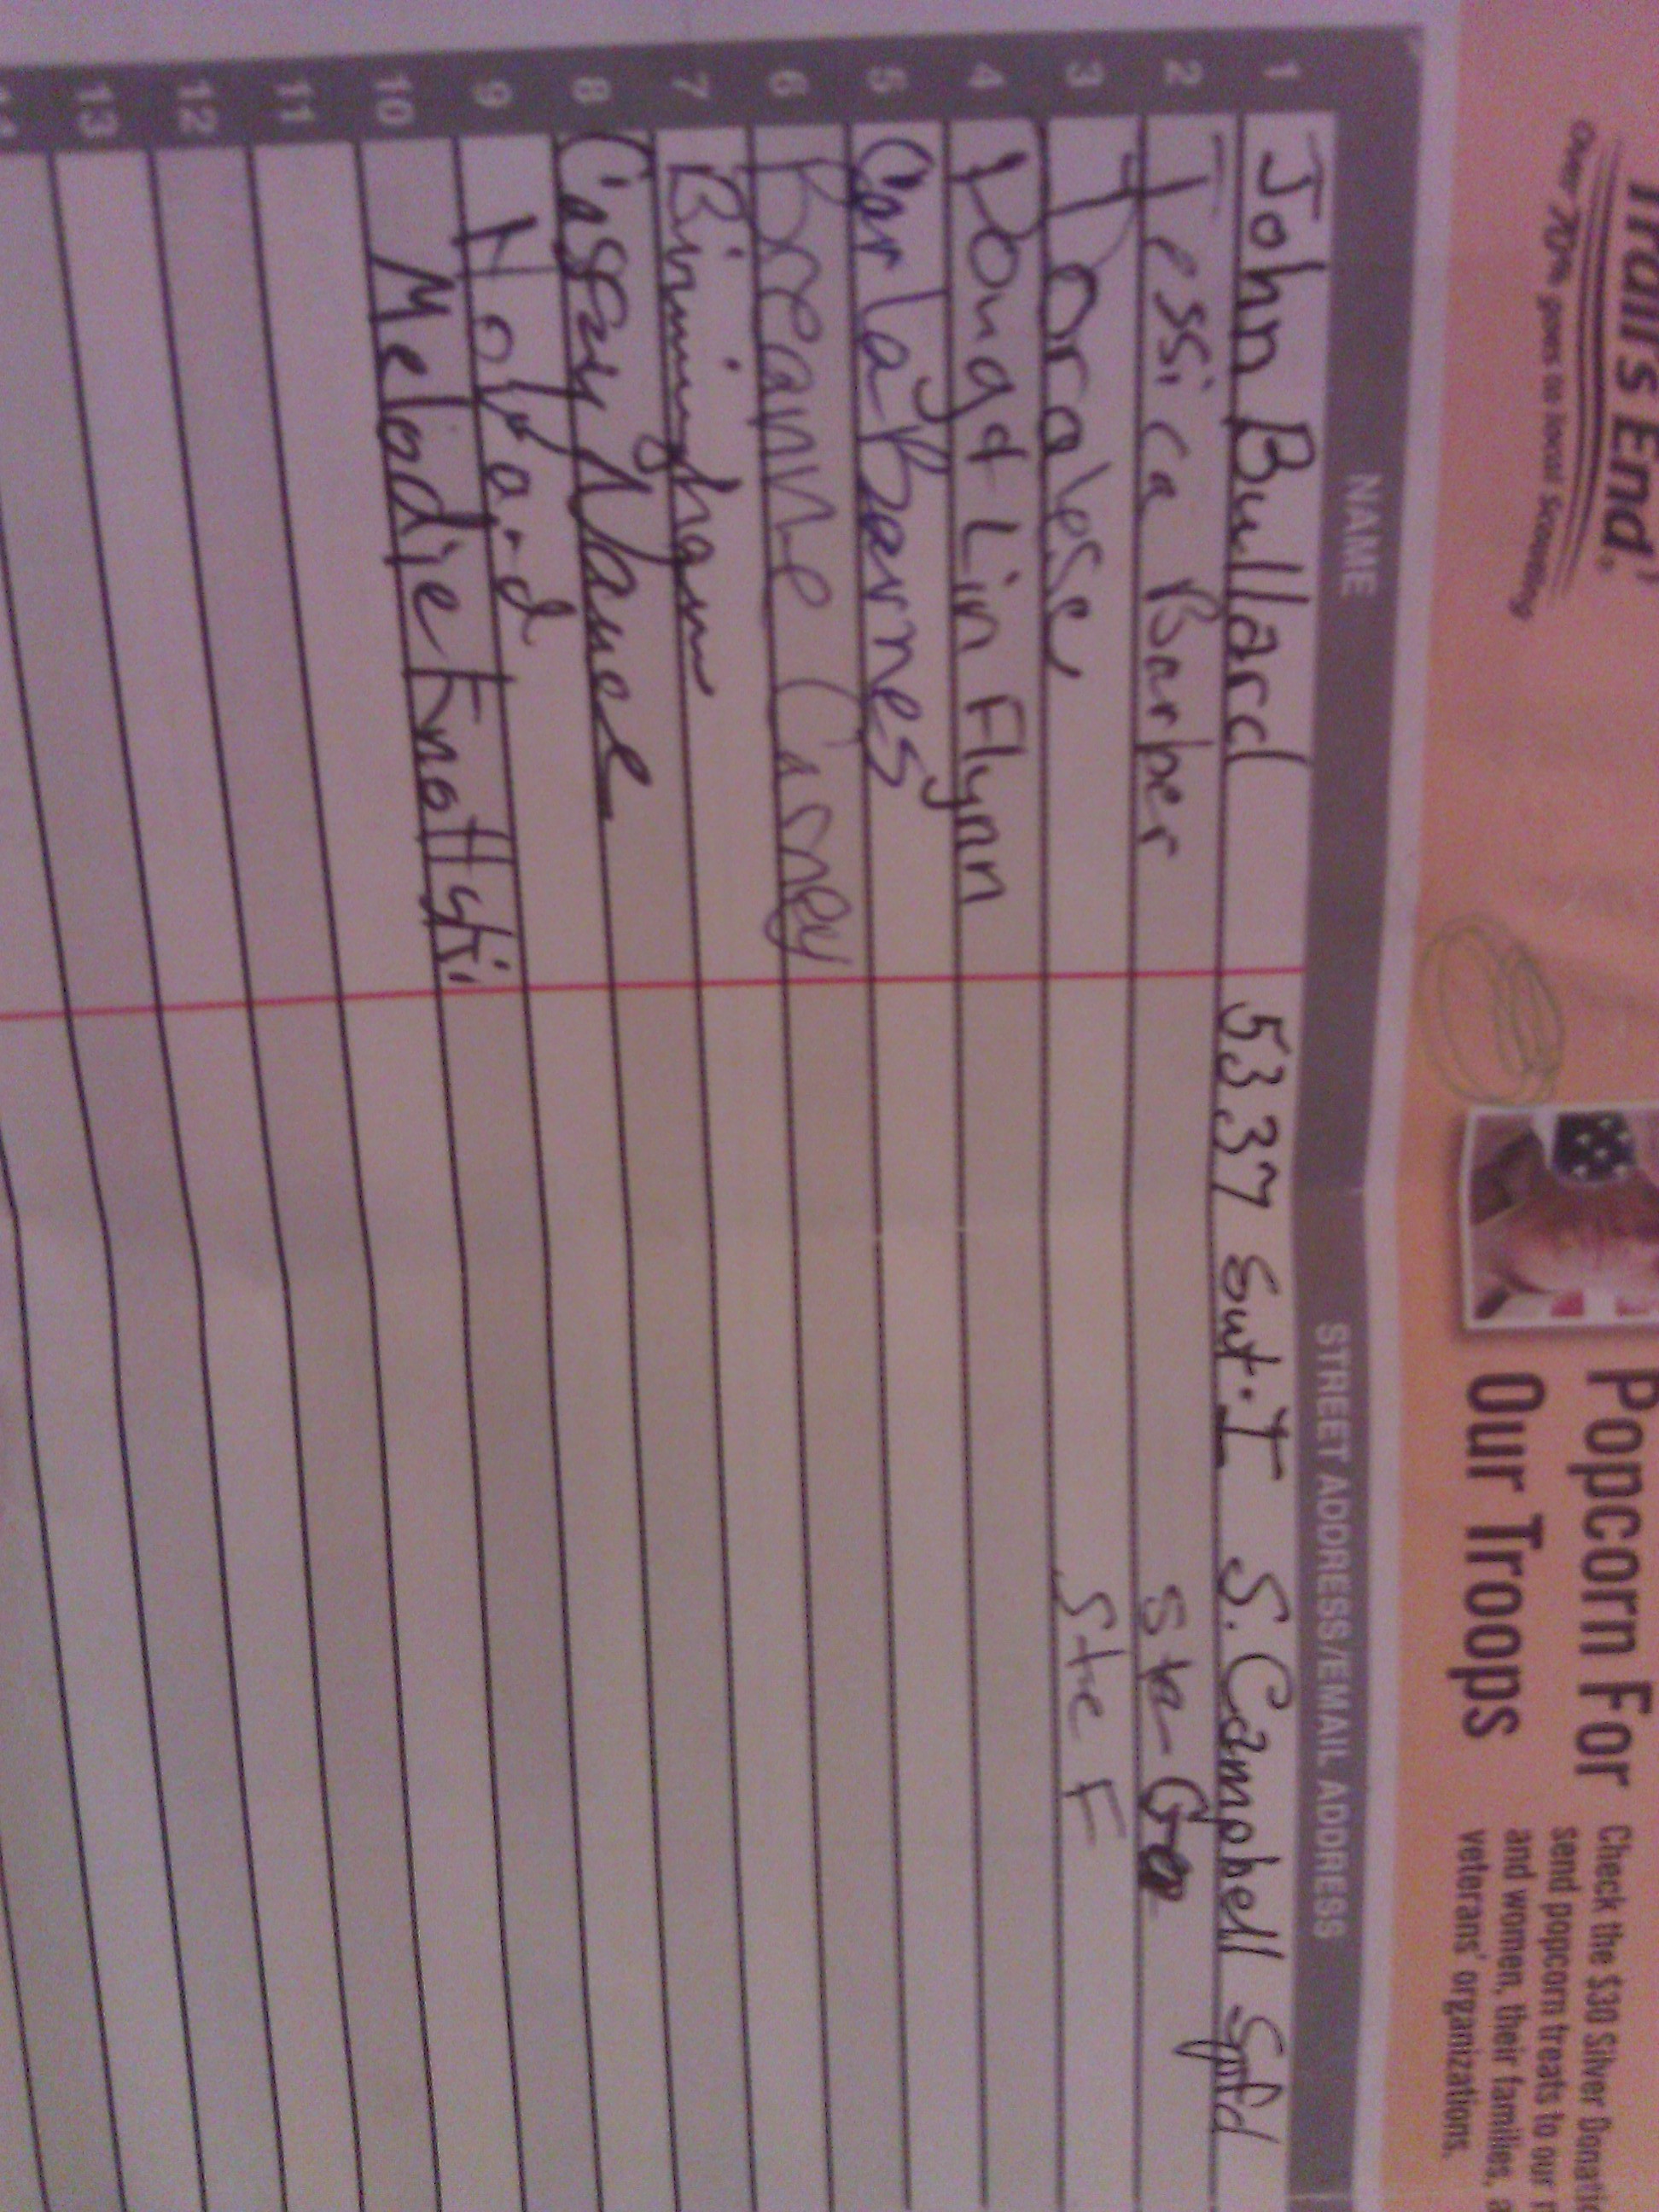 Trail's End®
Over 70% goes to local Scouting
Popcorn For
Our Troops
Check the $30 Silver Donati
send popcorn treats to our
and women, their families, a
veterans' organizations.
NAME STREET ADDRESS/EMAIL ADDRESS
1 John Bullard 5337 Sut. I S. Campbell Spfd
2 Jessica Barber Ste G
3 Ste F
4 Doug & Lin Flynn
5 Carla Barnes
6 Breanne Carney
7 Birmingham
8 Casey Nance
9
10 Melodie
11
12
13
14